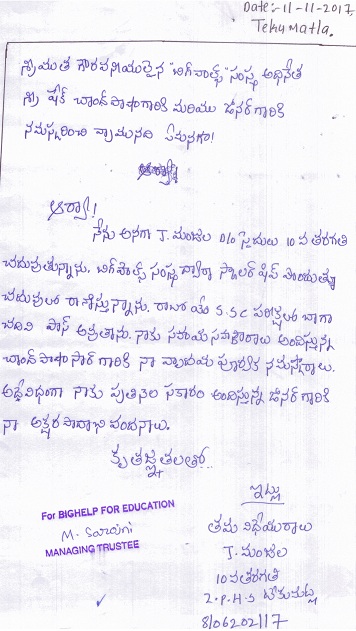 Date:- 11-11-2017
Tekumatla.
శ్రీమతి గౌరవనీయులైన "బిగ్ హెల్ప్" సంస్థ అధినేత
శ్రీ షేక్ చాంద్ పాషాగారికి మరియు డోనర్ గారికి
నమస్కరించి వ్రాయునది ఏమనగా!
ఆర్యా!
నేను అనగా J. మంజుల D/o సైదులు 10వ తరగతి
చదువుతున్నాను. బిగ్ హెల్ప్ సంస్థ ద్వారా స్కాలర్ షిప్ పొందుతూ
చదువులో రాణిస్తున్నాను. రాబోయే S.S.C పరీక్షలో బాగా
చదివి పాస్ అవుతాను. నాకు సహాయ సహకారాలు అందిస్తున్న
చాంద్ పాషా సార్ గారికి నా హృదయ పూర్వక నమస్కారాలు.
అదేవిధంగా నాకు ప్రతినెల సహకారం అందిస్తున్న డోనర్ గారికి
నా అక్షర పాదాభి వందనాలు.
కృతజ్ఞతలతో..
ఇట్లు
తమ విధేయురాలు
J. మంజుల
10వ తరగతి
Z.P.H.S టేకుమట్ల
8/06202/17
For BIGHELP FOR EDUCATION
M. Sarojini
MANAGING TRUSTEE